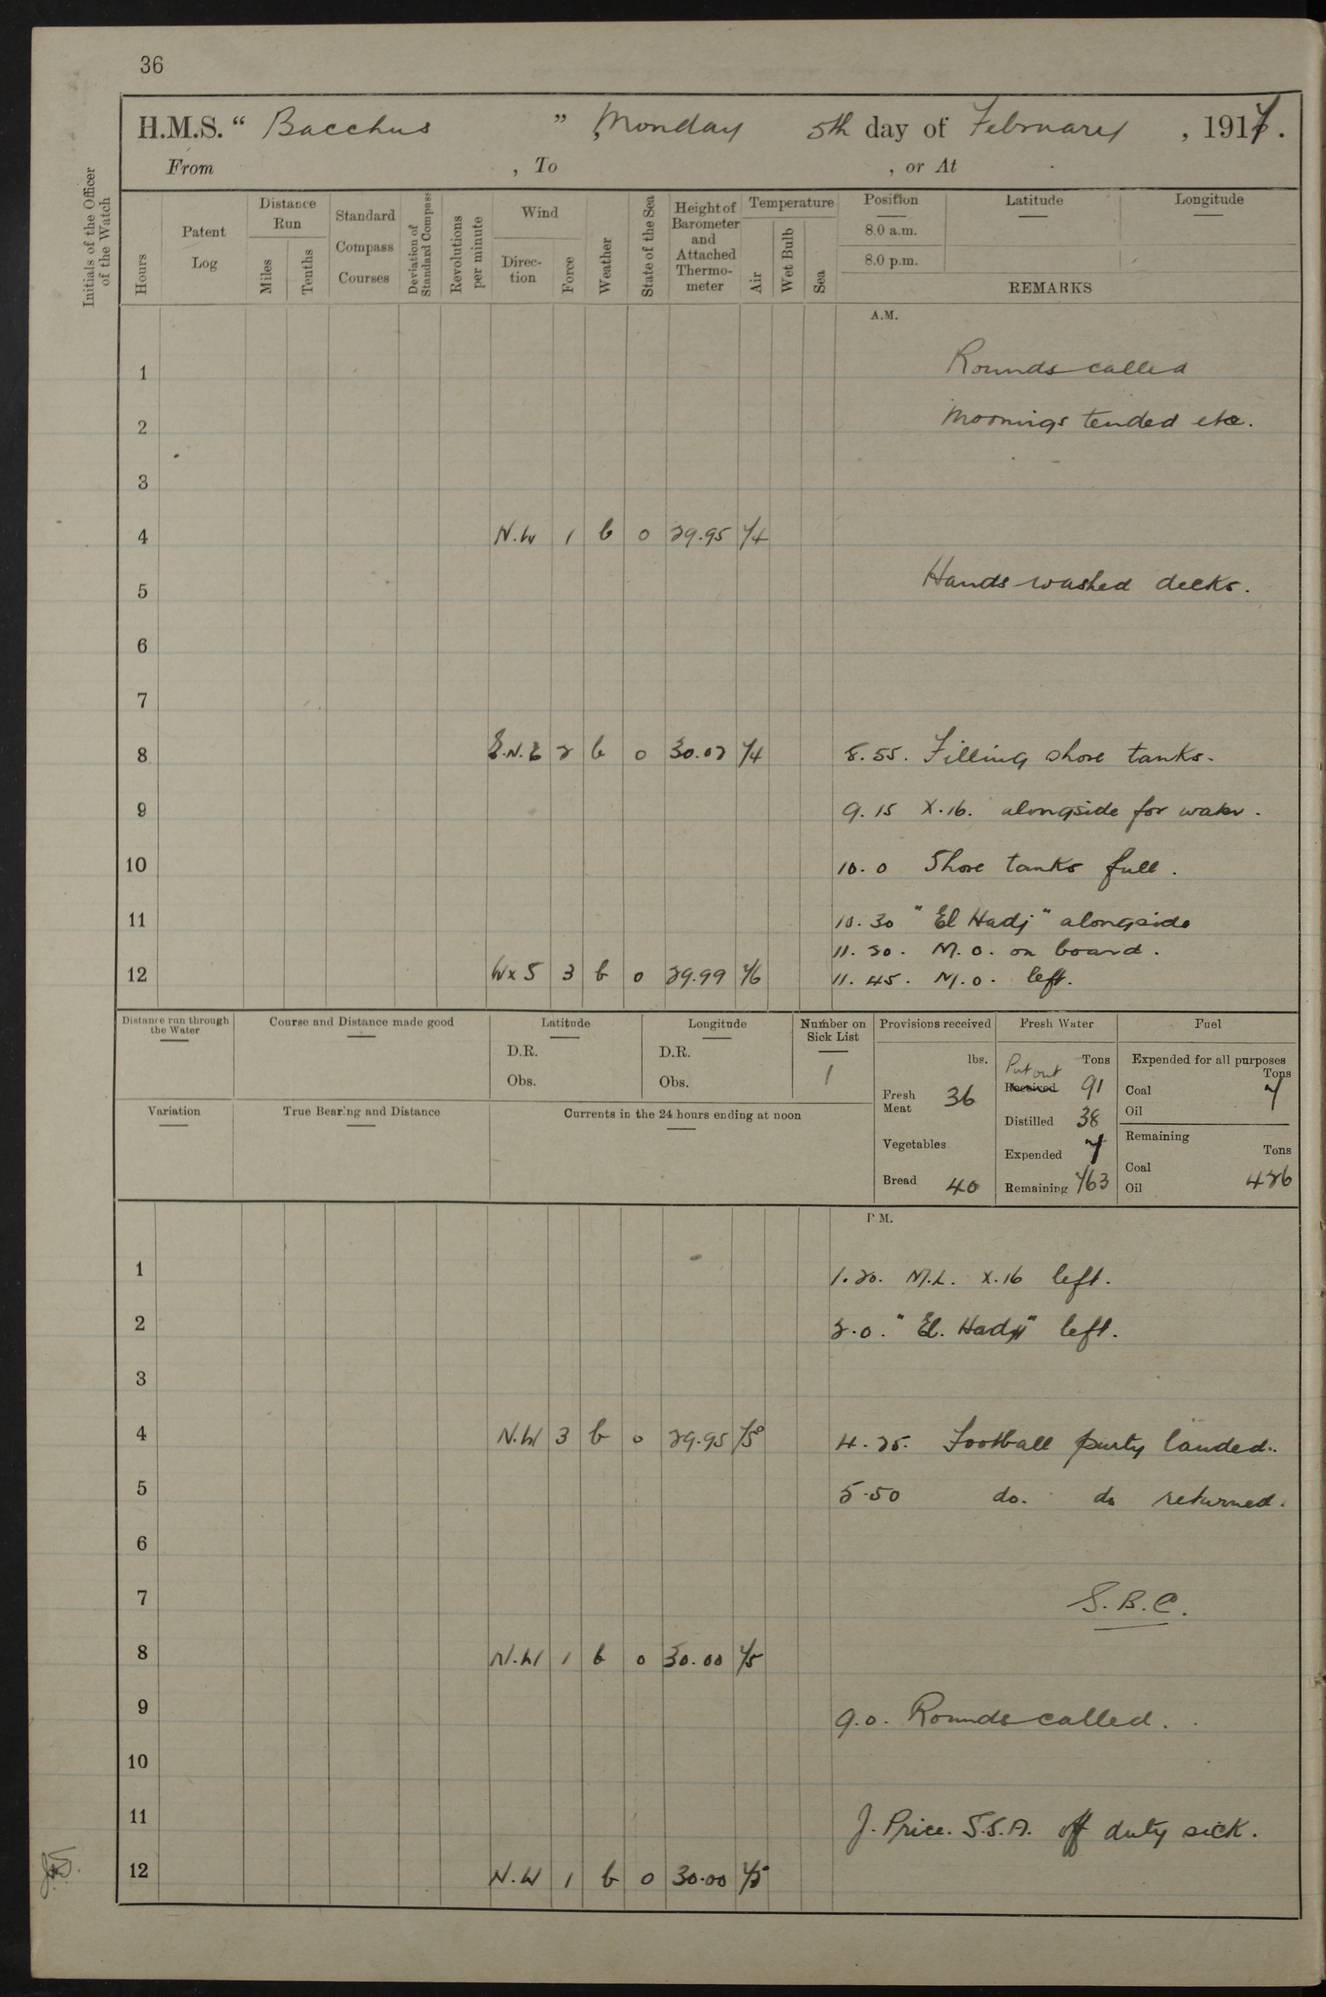 36
H.M.S. “ Bacchus ” , Monday 5th day of February , 1917.
From , To , or At
Initials of the Officer of the Watch
Hours
Patent Log
Distance Run
Miles
Tenths
Standard Compass Courses
Deviation of Standard Compass
Revolutions per minute
Wind
Direction
Force
Weather
State of the Sea
Height of Barometer and Attached Thermometer
Temperature
Air
Wet Bulb
Sea
Position
8.0 a.m.
8.0 p.m.
Latitude
Longitude
REMARKS
A.M.
1 Rounds called
2 Moorings tended etc.
3
4 N.W 1 b 0 29.95 74
5 Hands washed decks.
6
7
8 E.N.E 2 b 0 30.02 74 8.55. Filling shore tanks.
9 9.15 X.16. alongside for water.
10 10.0 Shore tanks full.
11 10.30 "El Hadj" alongside
11.30. M.O. on board.
12 W x S 3 b 0 29.99 76 11.45. M.O. left.
Distance run through the Water
Course and Distance made good
Latitude
D.R.
Obs.
Longitude
D.R.
Obs.
Number on Sick List
1
Provisions received
lbs.
Fresh Meat 36
Vegetables
Bread 40
Fresh Water
Tons
Put out
Received 91
Distilled 38
Expended 7
Remaining 763
Fuel
Expended for all purposes
Tons
Coal 7
Oil
Remaining
Tons
Coal
Oil 426
Variation
True Bearing and Distance
Currents in the 24 hours ending at noon
P.M.
1 1.20. M.L. X.16 left.
2 2.0. "El. Hadj" left.
3
4 N.W 3 b 0 29.95 75° 4.25. Football party landed.
5 5.50 do. do returned.
6
7 S.B.C.
8 N.W 1 b 0 30.00 75
9 9.0. Rounds called.
10
11 J. Price. S.S.A. off duty sick.
12 N.W 1 b 0 30.00 75